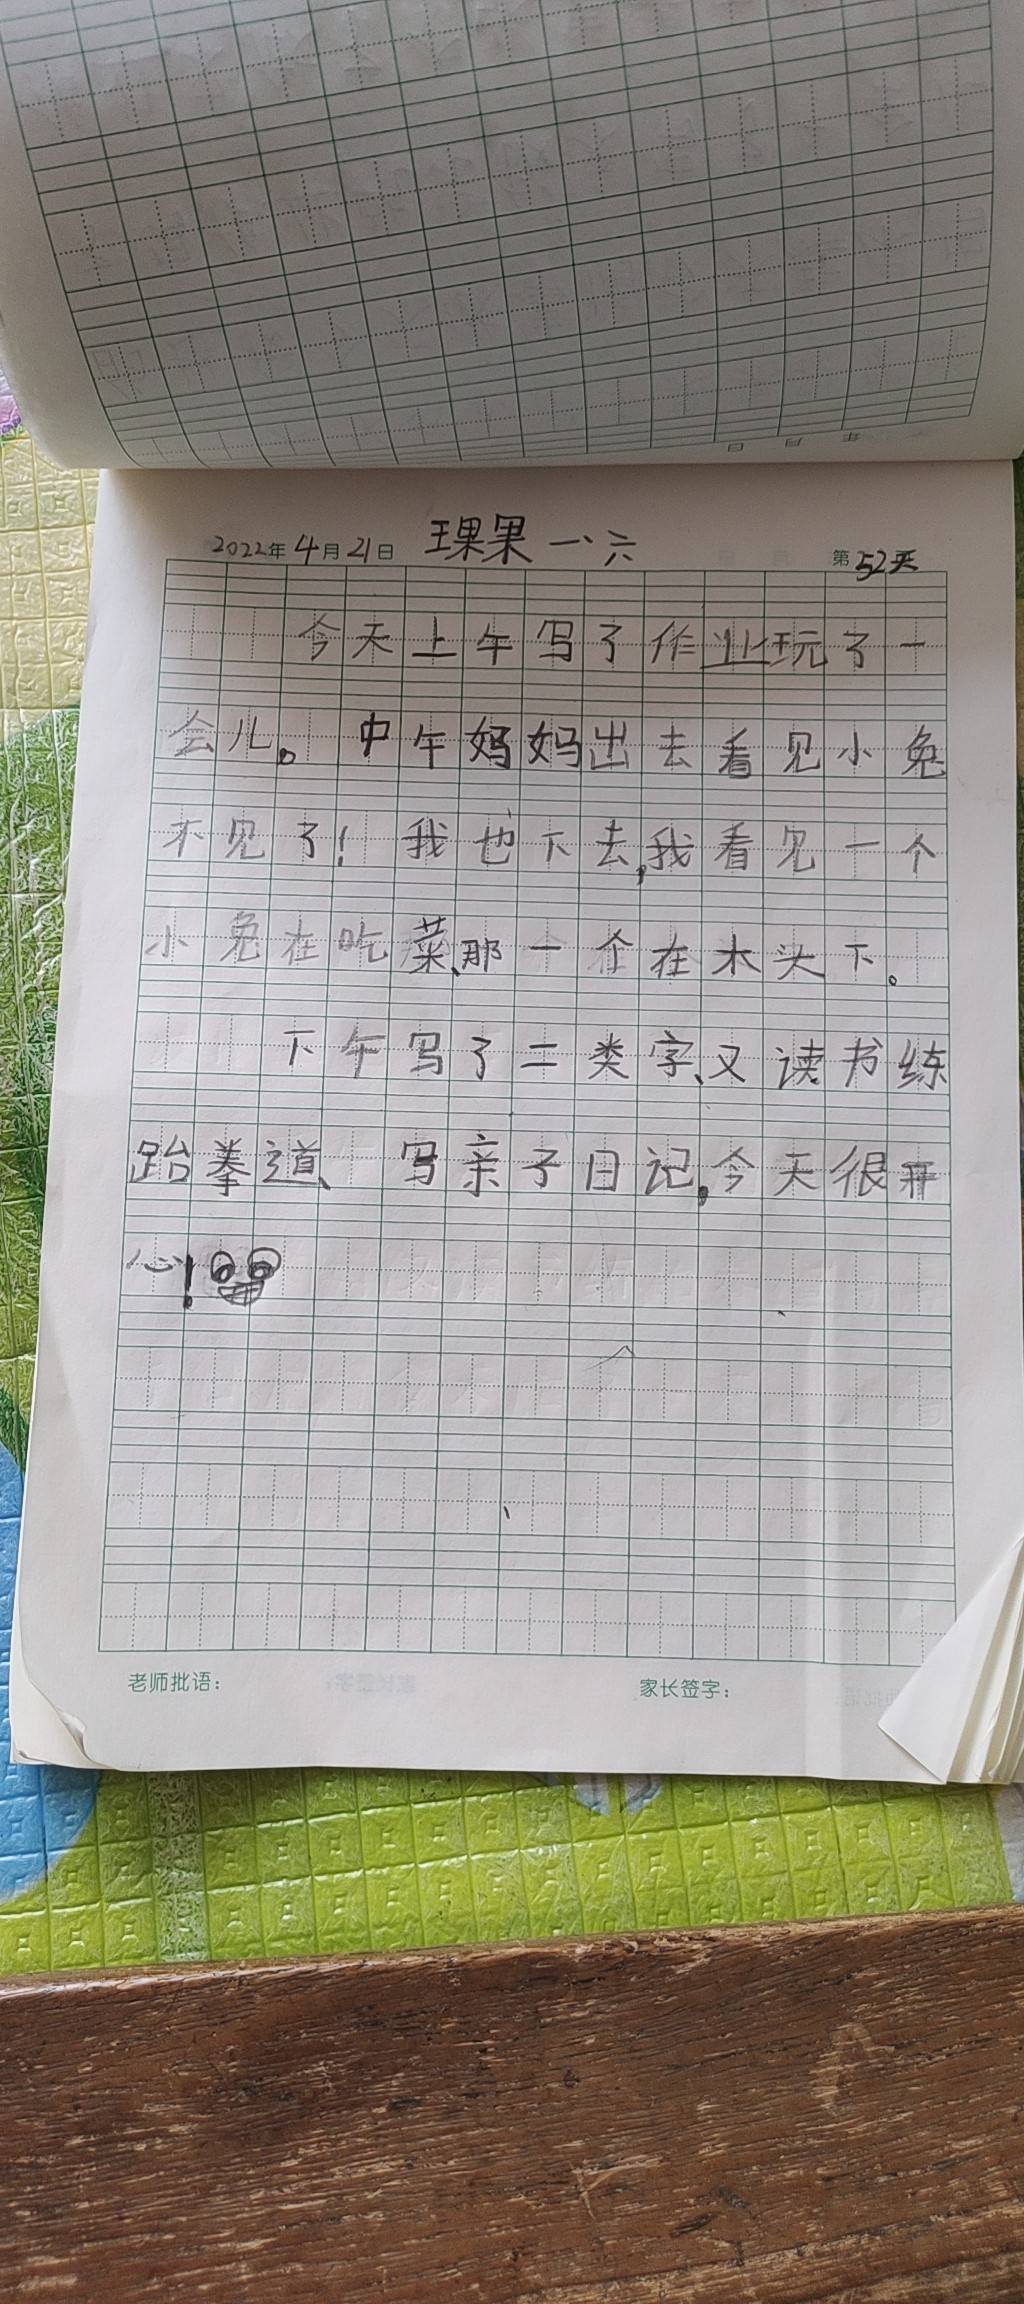 2022年4月21日 王果果 一、六 第52天
今天上午写了作业玩了一
会儿。中午妈妈出去看见小兔
不见了！我也下去,我看见一个
小兔在吃菜、那一个在木头下。
下午写了二类字、又读书练
跆拳道、写亲子日记,今天很开
心！
老师批语： 家长签字：